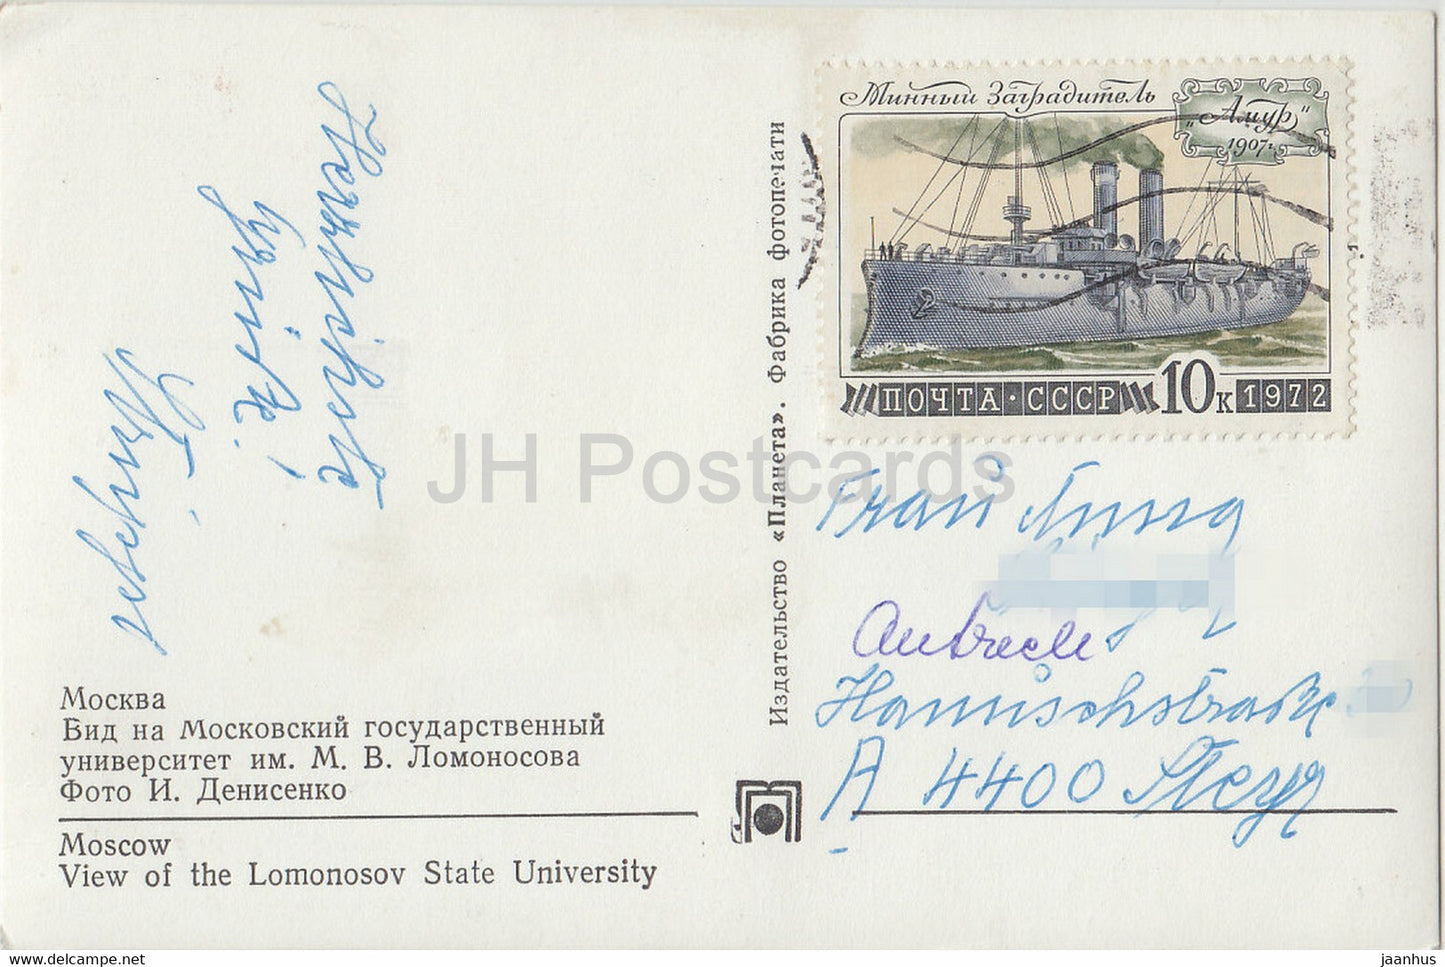 Минный Заградитель
"Амур"
1907г.
ПОЧТА · СССР 10к 1972
Издательство «Планета». Фабрика фотопечати
Herzlichste
Grüße!
Frau Anna
Hanuschstraße
A 4400 Steyr
Москва
Вид на Московский государственный
университет им. М. В. Ломоносова
Фото И. Денисенко
Moscow
View of the Lomonosov State University
JH Postcards
jaanhus